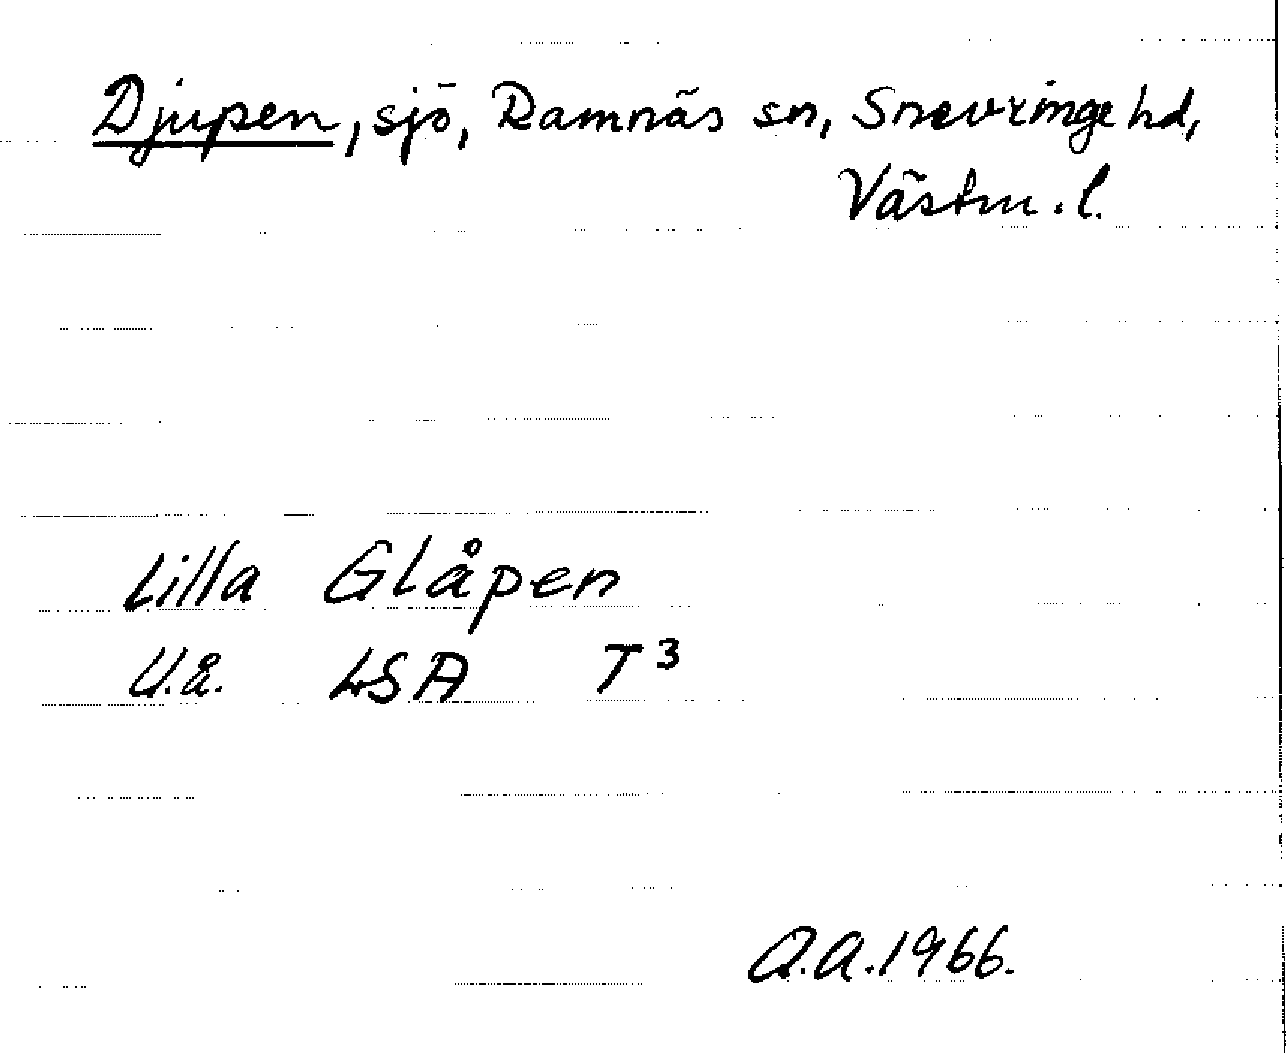 Djupen, sjö, Ramnäs sn, Snevringe hd,
Västm. l.
Lilla Glåpen
U.å. LSA T³
A.A. 1966.